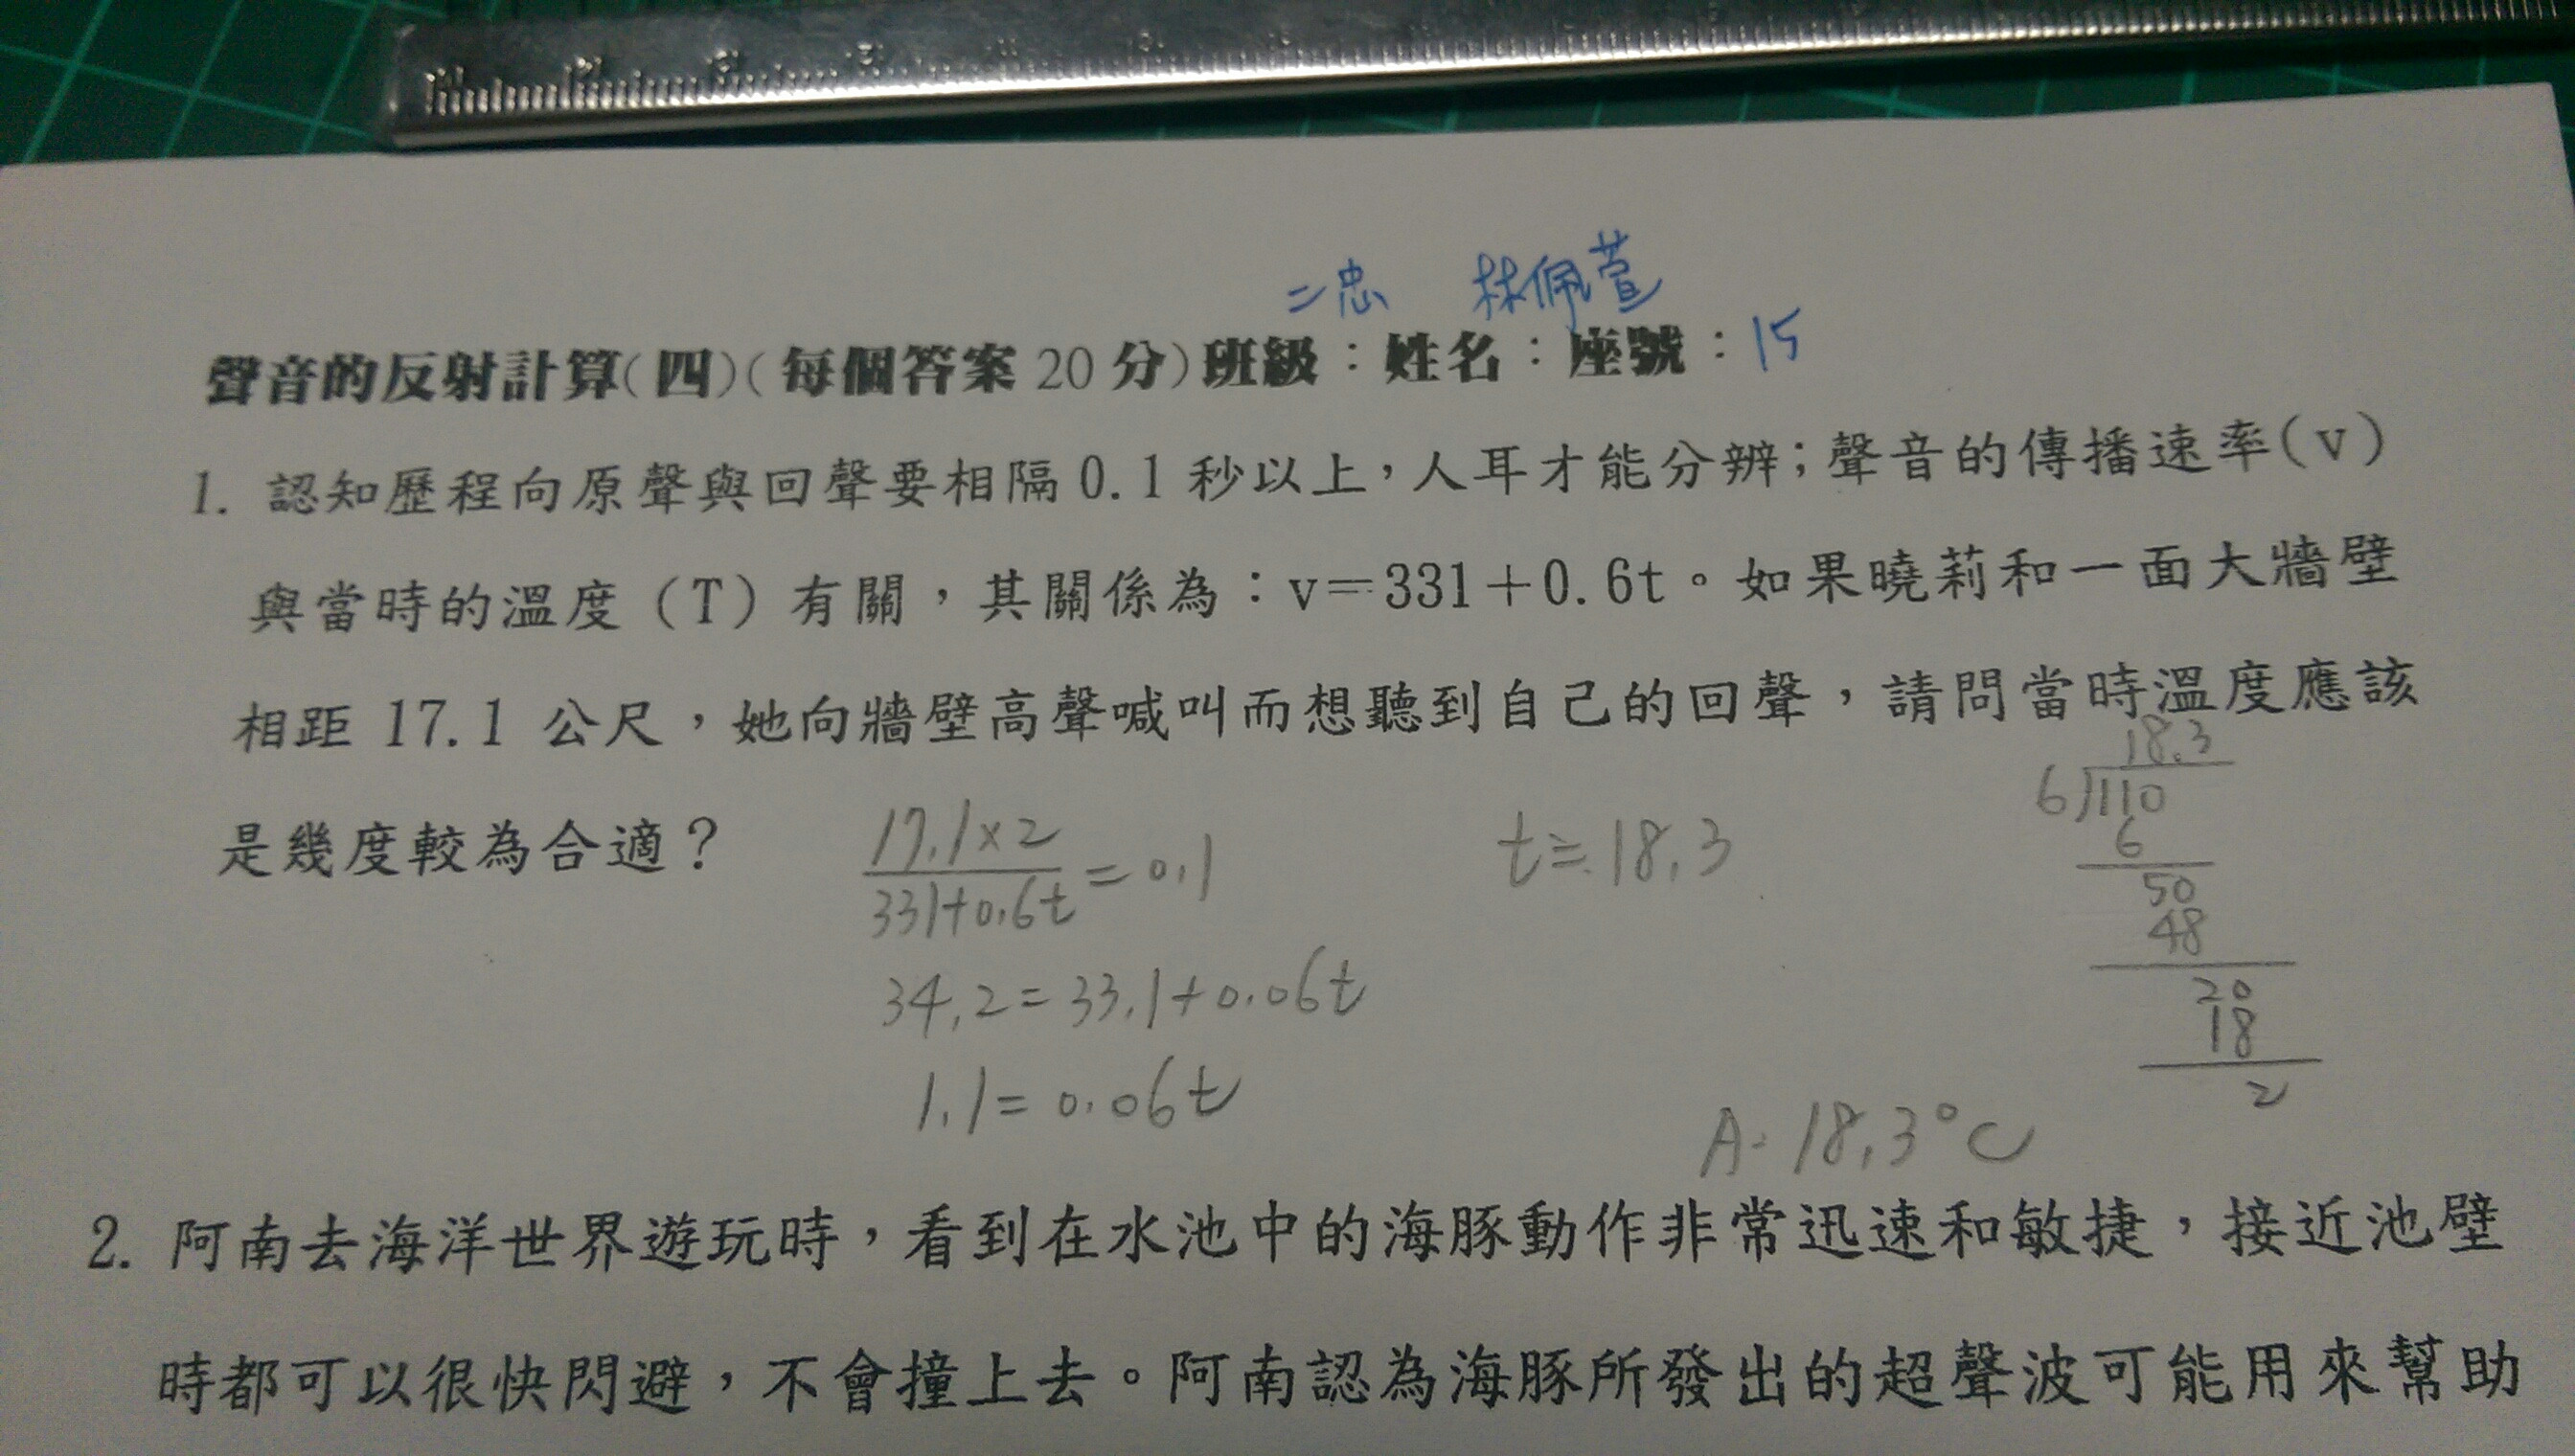 二忠 林佩萱
聲音的反射計算(四)(每個答案20分)班級：姓名：座號：15
1. 認知歷程向原聲與回聲要相隔0.1秒以上，人耳才能分辨；聲音的傳播速率(v)
與當時的溫度（T）有關，其關係為：v＝331＋0.6t。如果曉莉和一面大牆壁
相距 17.1 公尺，她向牆壁高聲喊叫而想聽到自己的回聲，請問當時溫度應該
是幾度較為合適？
17.1×2
331+0.6t
=0.1
34.2=33.1+0.06t
1.1=0.06t
t≒18.3
18.3
6)110
6
50
48
20
18
2
A. 18.3°C
2. 阿南去海洋世界遊玩時，看到在水池中的海豚動作非常迅速和敏捷，接近池壁
時都可以很快閃避，不會撞上去。阿南認為海豚所發出的超聲波可能用來幫助